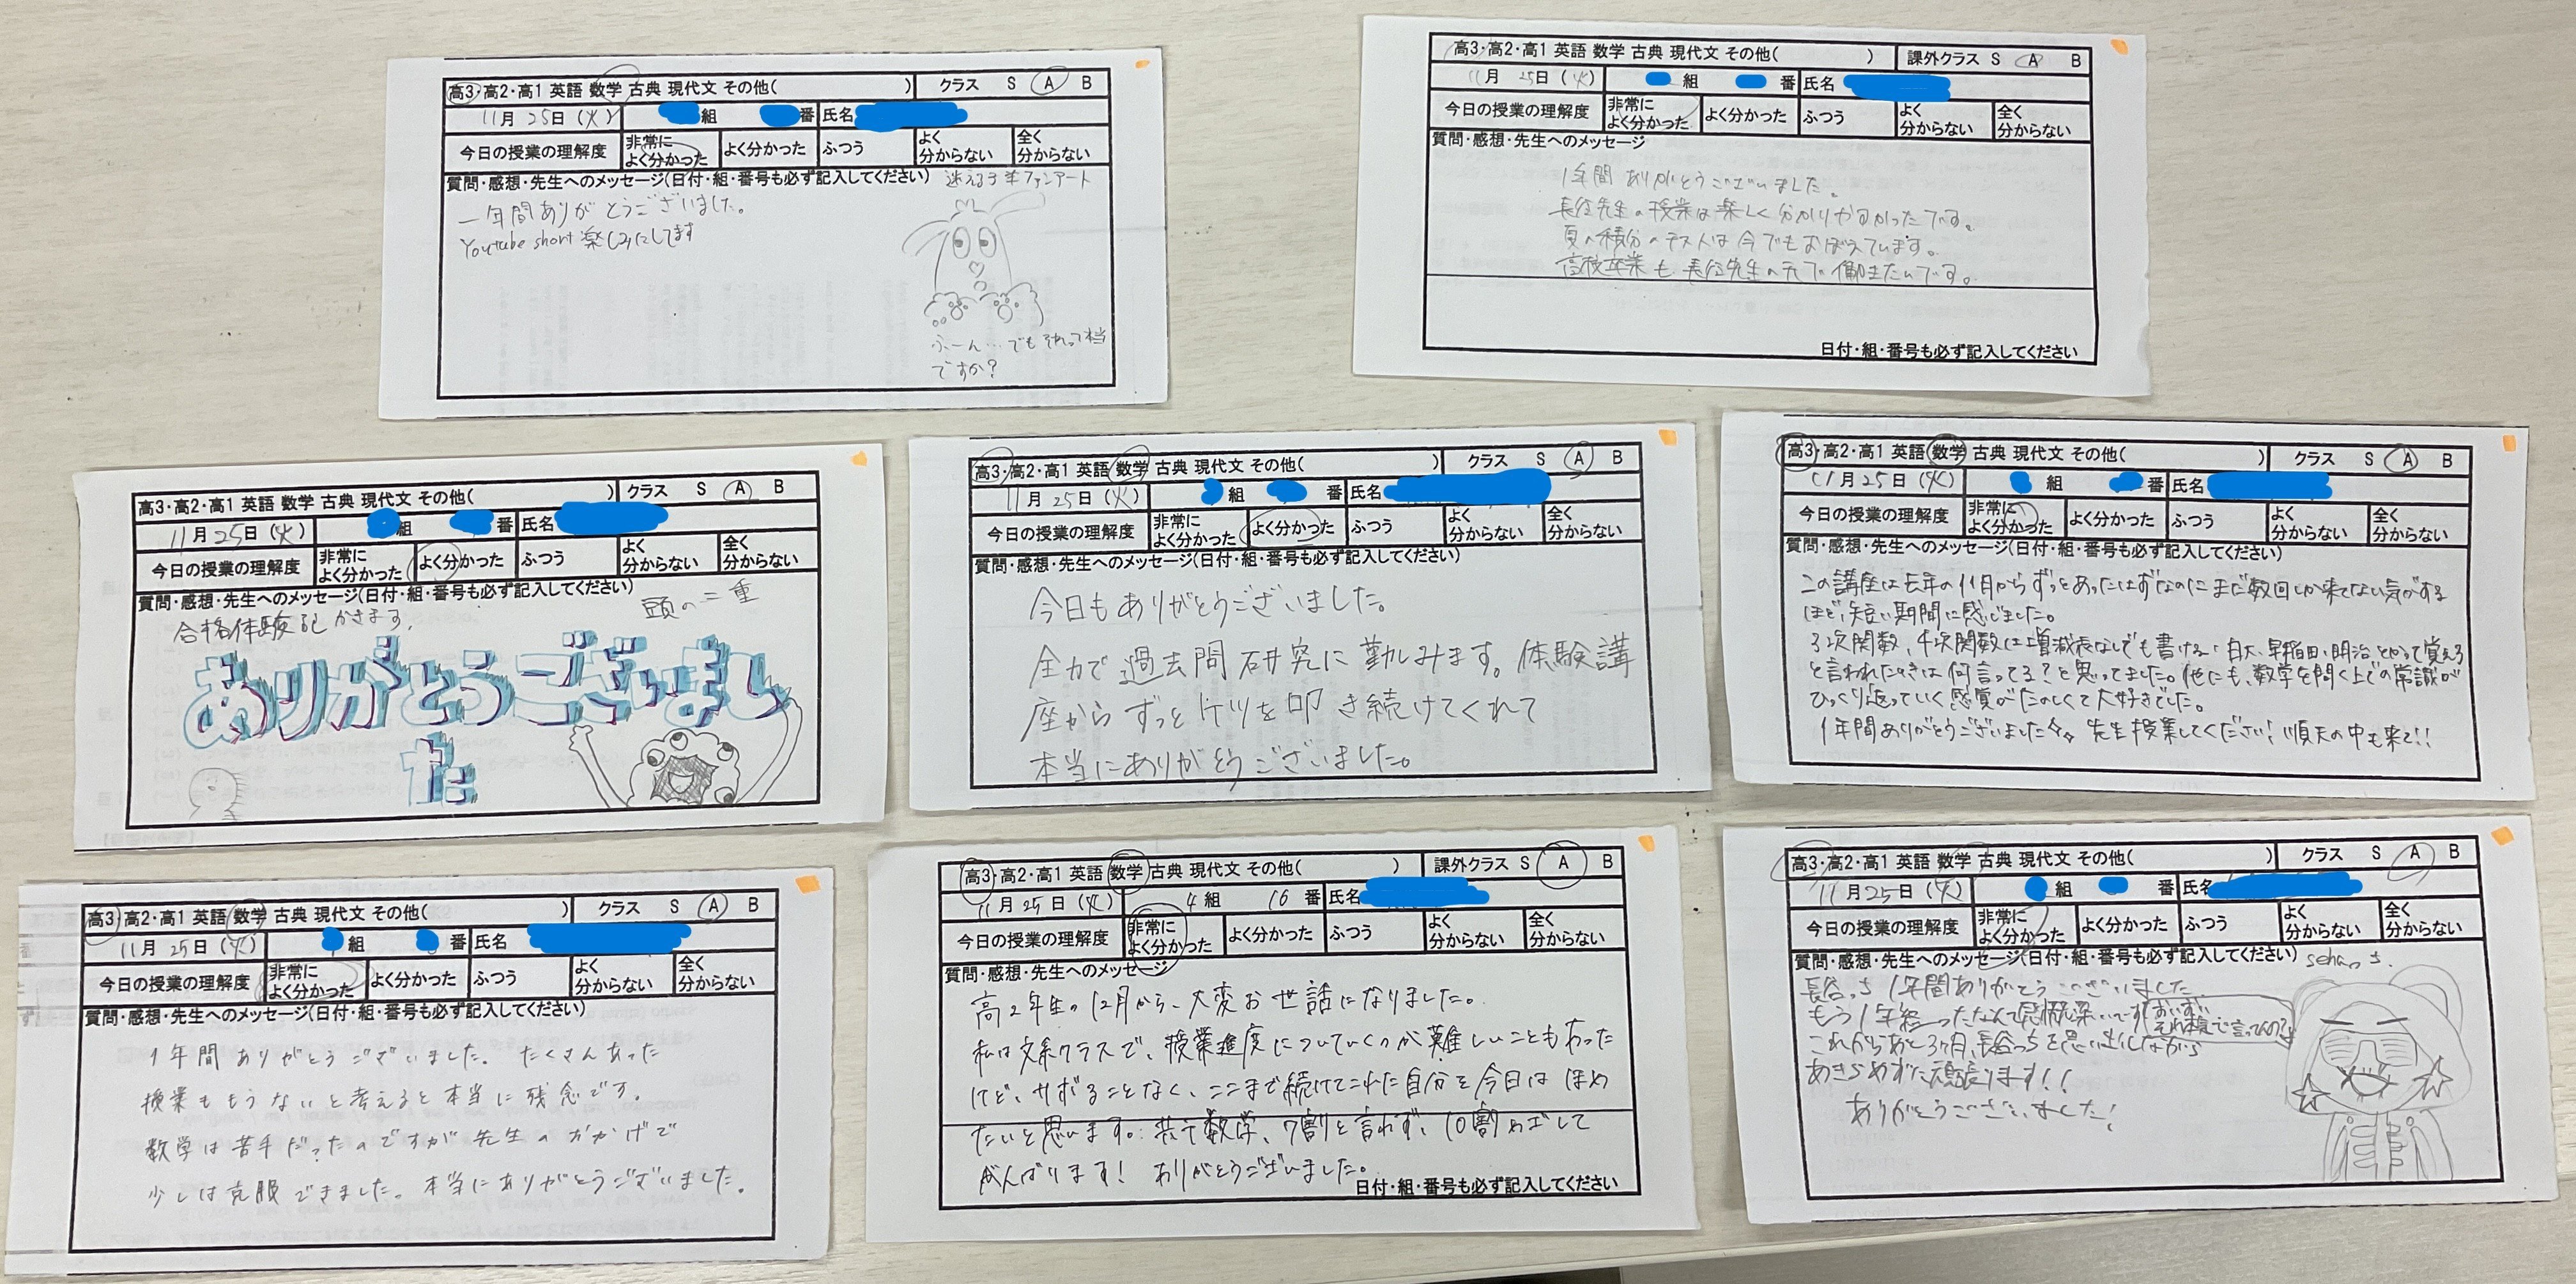 高3・高2・高1 英語 数学 古典 現代文 その他( ) クラス S A B
11月 25日 (火) 組 番 氏名
今日の授業の理解度 非常によく分かった よく分かった ふつう よく分からない 全く分からない
質問・感想・先生へのメッセージ(日付・組・番号も必ず記入してください) 迷える子羊ファンアート
一年間ありがとうございました。
Youtube short 楽しみにしてます
ふーん…でもそれって本当
ですか?
高3・高2・高1 英語 数学 古典 現代文 その他( ) 課外クラス S A B
11月 25日 (火) 組 番 氏名
今日の授業の理解度 非常によく分かった よく分かった ふつう よく分からない 全く分からない
質問・感想・先生へのメッセージ
1年間 ありがとうございました。
長谷先生の授業は楽しく分かりやすかったです。
夏の積分のテストは今でもおぼえています。
高校卒業も長谷先生の元で働きたいです。
日付・組・番号も必ず記入してください
高3・高2・高1 英語 数学 古典 現代文 その他( ) クラス S A B
11月 25日 (火) 組 番 氏名
今日の授業の理解度 非常によく分かった よく分かった ふつう よく分からない 全く分からない
質問・感想・先生へのメッセージ(日付・組・番号も必ず記入してください)
合格体験記かきます。 頭の二重
ありがとうございまし
た
高3・高2・高1 英語 数学 古典 現代文 その他( ) クラス S A B
11月 25日 (火) 組 番 氏名
今日の授業の理解度 非常によく分かった よく分かった ふつう よく分からない 全く分からない
質問・感想・先生へのメッセージ(日付・組・番号も必ず記入してください)
今日もありがとうございました。
全力で過去問研究に勤しみます。体験講
座からずっとケツを叩き続けてくれて
本当にありがとうございました。
高3・高2・高1 英語 数学 古典 現代文 その他( ) クラス S A B
11月 25日 (火) 組 番 氏名
今日の授業の理解度 非常によく分かった よく分かった ふつう よく分からない 全く分からない
質問・感想・先生へのメッセージ(日付・組・番号も必ず記入してください)
この講座は去年の11月からずっとあったはずなのにまだ数回しか来てない気がする
ほど、短い期間に感じました。
3次関数、4次関数は増減表なしでも書ける、日大、早稲田、明治とかって覚えろ
と言われたときは何言ってる?と思ってました。他にも、数学を問く上での常識が
ひっくり返っていく感覚がたのしくて大好きでした。
1年間ありがとうございました 先生授業してください! 順天の中も来て!!
高3・高2・高1 英語 数学 古典 現代文 その他( ) クラス S A B
11月 25日 (火) 組 番 氏名
今日の授業の理解度 非常によく分かった よく分かった ふつう よく分からない 全く分からない
質問・感想・先生へのメッセージ(日付・組・番号も必ず記入してください)
1年間ありがとうございました。たくさんあった
授業ももうないと考えると本当に残念です。
数学は苦手だったのですが先生のおかげで
少しは克服できました。本当にありがとうございました。
高3・高2・高1 英語 数学 古典 現代文 その他( ) 課外クラス S A B
11月 25日 (火) 4組 16番 氏名
今日の授業の理解度 非常によく分かった よく分かった ふつう よく分からない 全く分からない
質問・感想・先生へのメッセージ
高2年生の12月から、大変お世話になりました。
私は文系クラスで、授業進度についていくのが難しいこともあった
けど、サボることなく、ここまで続けてこれた自分を今日はほめ
たいと思います。共テ数学、7割と言わず、10割めざして
がんばります! ありがとうございました。
日付・組・番号も必ず記入してください
高3・高2・高1 英語 数学 古典 現代文 その他( ) クラス S A B
11月 25日 (火) 組 番 氏名
今日の授業の理解度 非常によく分かった よく分かった ふつう よく分からない 全く分からない
質問・感想・先生へのメッセージ(日付・組・番号も必ず記入してください)
長谷っち 1年間ありがとうございました
もう1年経ったなんて感慨深いです
それ本気で言ってんの?
これからあと3ヶ月、長谷っちを思い出しながら
あきらめずに頑張ります!!
ありがとうございました!